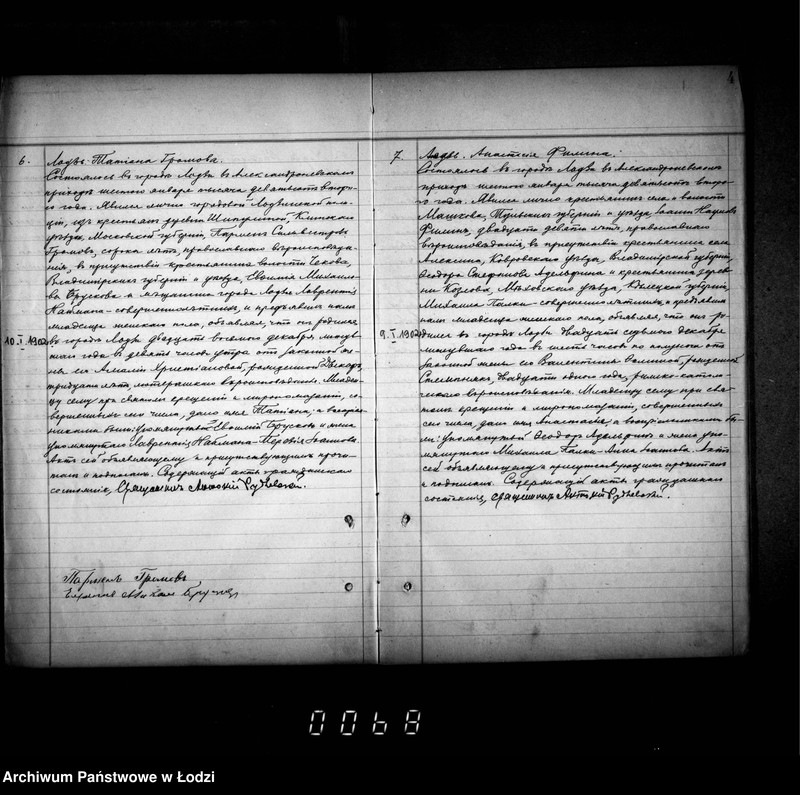 4
6.
Лодзь. Татiана Громова.
Состоялось въ городѣ Лодзи въ Александроневскомъ
приходѣ шестого января тысяча девятьсотъ второ-
го года. Явился лично городовой Лодзинской поли-
цiи, изъ крестьянъ деревни Клинскаго
уѣзда, Московской губернiи, Парменъ Селивестровъ
Громовъ, сорока лѣтъ, православнаго вѣроисповѣда-
нiя, въ присутствiи крестьянина волости
Владимiрскихъ губернiи и уѣзда, Михаило-
ва Брускова и мѣщанина города Лодзи Лаврентiя
Наймана - совершеннолѣтнихъ, и предъявилъ намъ
младенца женскаго пола, объявляя, что онъ родился
10.I.1902
въ городѣ Лодзи двадцать декабря минув-
шаго года въ девять часовъ утра отъ законной же-
ны его Амалiи Христiановой, рожденной
тридцати лѣтъ, лютеранскаго вѣроисповѣданiя. Младен-
цу сему при святомъ крещенiи и мѵропомазанiи, со-
вершенныхъ сего числа, дано имя Татiана, а воспрiем-
никами были: упомянутый Брусковъ и жена
упомянутаго Лаврентiя Наймана - Иванова.
Актъ сей объявляющему и присутствующимъ прочи-
танъ и подписанъ. Содержащiй акты гражданскаго
состоянiя, Священникъ Антонiй Рудлевскiй.
Парменъ Громовъ
7.
Лодзь. Анастасiя Филина.
Состоялось въ городѣ Лодзи въ Александроневскомъ
приходѣ шестого января тысяча девятьсотъ второ-
го года. Явился лично крестьянинъ села и волости
Машкова, губернiи и уѣзда, Наумовъ
Филинъ, двадцати девяти лѣтъ, православнаго
вѣроисповѣданiя, въ присутствiи крестьянина села
Алексина, Ковровскаго уѣзда, Владимiрской губернiи,
Ѳеодора Спиридонова и крестьянина дерев-
ни Козлова, Мѣховскаго уѣзда, Кѣлецкой губернiи,
Михаила Галки - совершеннолѣтнихъ, и предъявилъ
намъ младенца женскаго пола, объявляя, что онъ ро-
9.I.1902
дился въ городѣ Лодзи двадцать седьмого декабря
минувшаго года въ шесть часовъ по полуночи отъ
законной жены его Валентины рожденной
двадцати одного года, римско-католи-
ческаго вѣроисповѣданiя. Младенцу сему при свя-
томъ крещенiи и мѵропомазанiи, совершенныхъ
сего числа, дано имя Анастасiя, а воспрiемниками бы-
ли: упомянутый Ѳеодоръ и жена упо-
мянутаго Михаила Галки - Анна Иванова. Актъ
сей объявляющему и присутствующимъ прочитанъ
и подписанъ. Содержащiй акты гражданскаго
состоянiя, Священникъ Антонiй Рудлевскiй.
0068
Archiwum Państwowe w Łodzi